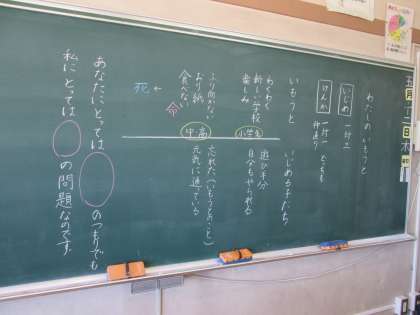 わたしのいもうと
いじめ 一対三
けんか 一対一 どっちも
仲直り
いもうと いじめる子たち
わくわく
新しい学校
楽しみ
小学生
遊び半分
自分もやられる
ふり向かない
おり紙
食べない
中高
忘れた(いもうとのこと)
元気に通っている
命
死 ←
あなたにとっては のつもりでも
私にとっては の問題なのです。